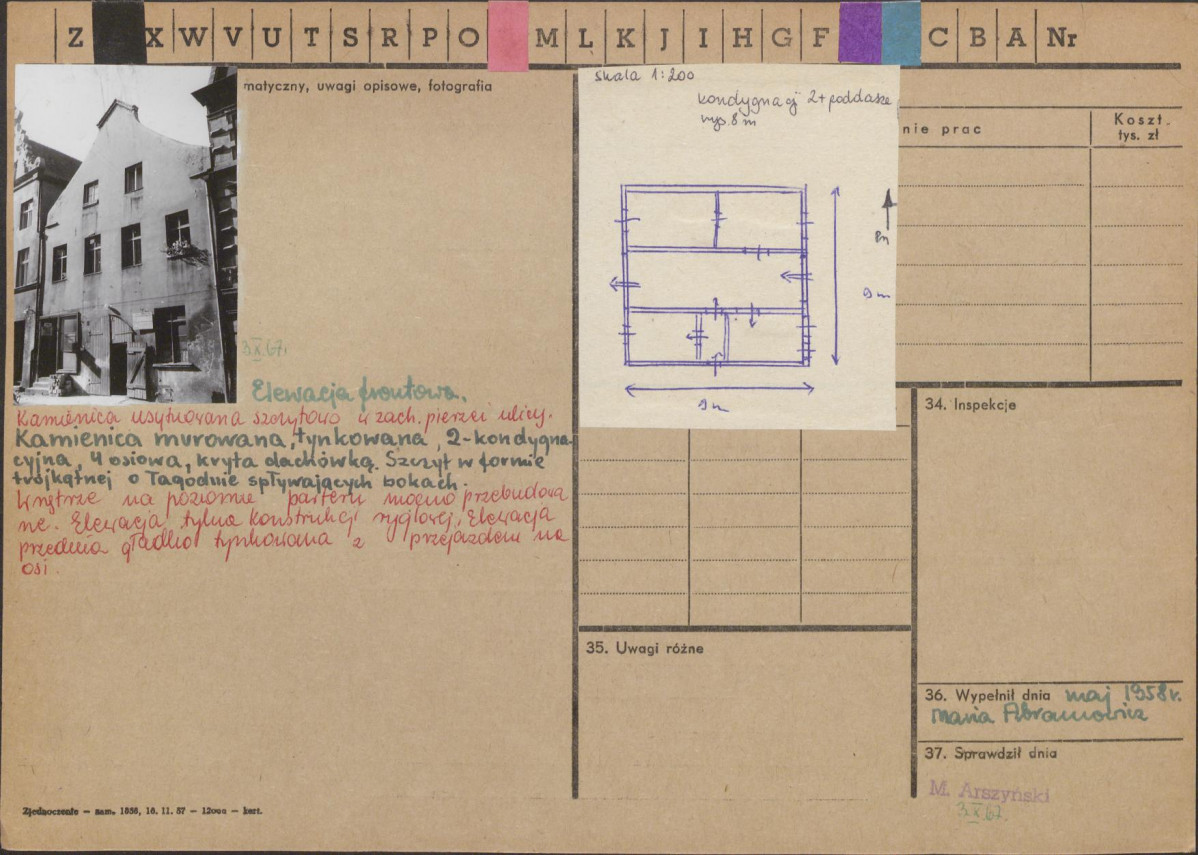 Z X W V U T S R P O M L K J I H G F C B A Nr
matyczny, uwagi opisowe, fotografia
3.X.67r.
Elewacja frontowa.
Kamienica usytuowana szczytowo w zach. pierzei ulicy.
Kamienica murowana, tynkowana, 2-kondygna-
cyjna, 4 osiowa, kryta dachówką. Szczyt w formie
trójkątnej o łagodnie spływających bokach.
Wnętrze na poziomie parteru mocno przebudowa
ne. Elewacja tylna konstrukcji ryglowej, Elewacja
przednia gładko tynkowana z przejazdem na
osi.
Zjednoczenie — zam. 1858, 16. 11. 57 — 12000 — kart.
skala 1:200
kondygnacji 2+poddasze
wys. 8 m
9 m
9 m
nie prac
Koszt.
tys. zł
34. Inspekcje
35. Uwagi różne
36. Wypełnił dnia maj 1958r.
Maria Abramowicz
37. Sprawdził dnia
M. Arszyński
3.X.67.